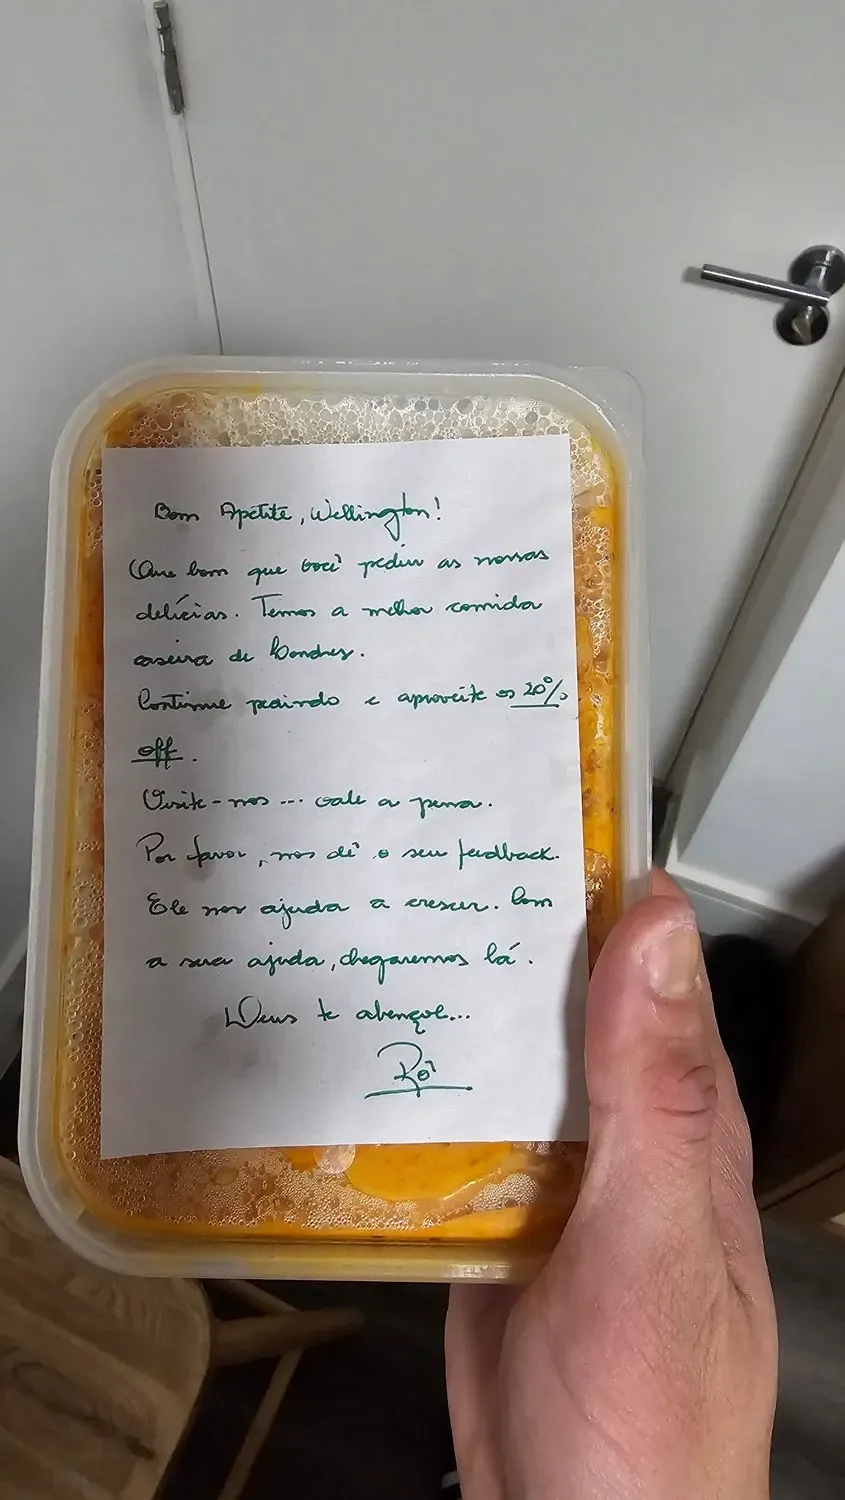 Bom Apetite, Wellington!
Que bom que você pediu as nossas
delícias. Temos a melhor comida
caseira de Londres.
Continue pedindo e aproveite os 20%
off.
Visite-nos... vale a pena.
Por favor, nos dê o seu feedback.
Ele nos ajuda a crescer. Com
a sua ajuda, chegaremos lá.
Deus te abençoe...
Rô